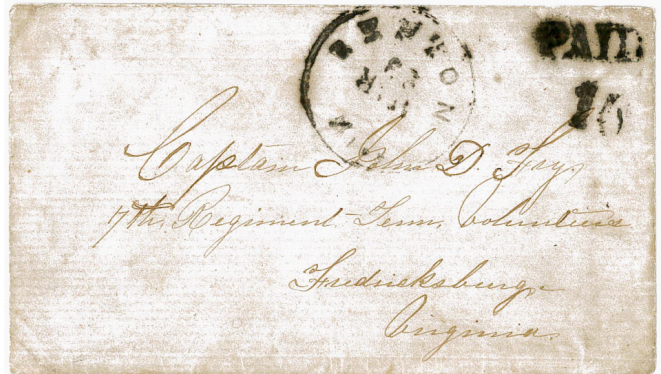 PAID
10
Captain John D. Fry,
7th, Regiment Tenn, Volunteers
Fredricksburg,
Virginia.